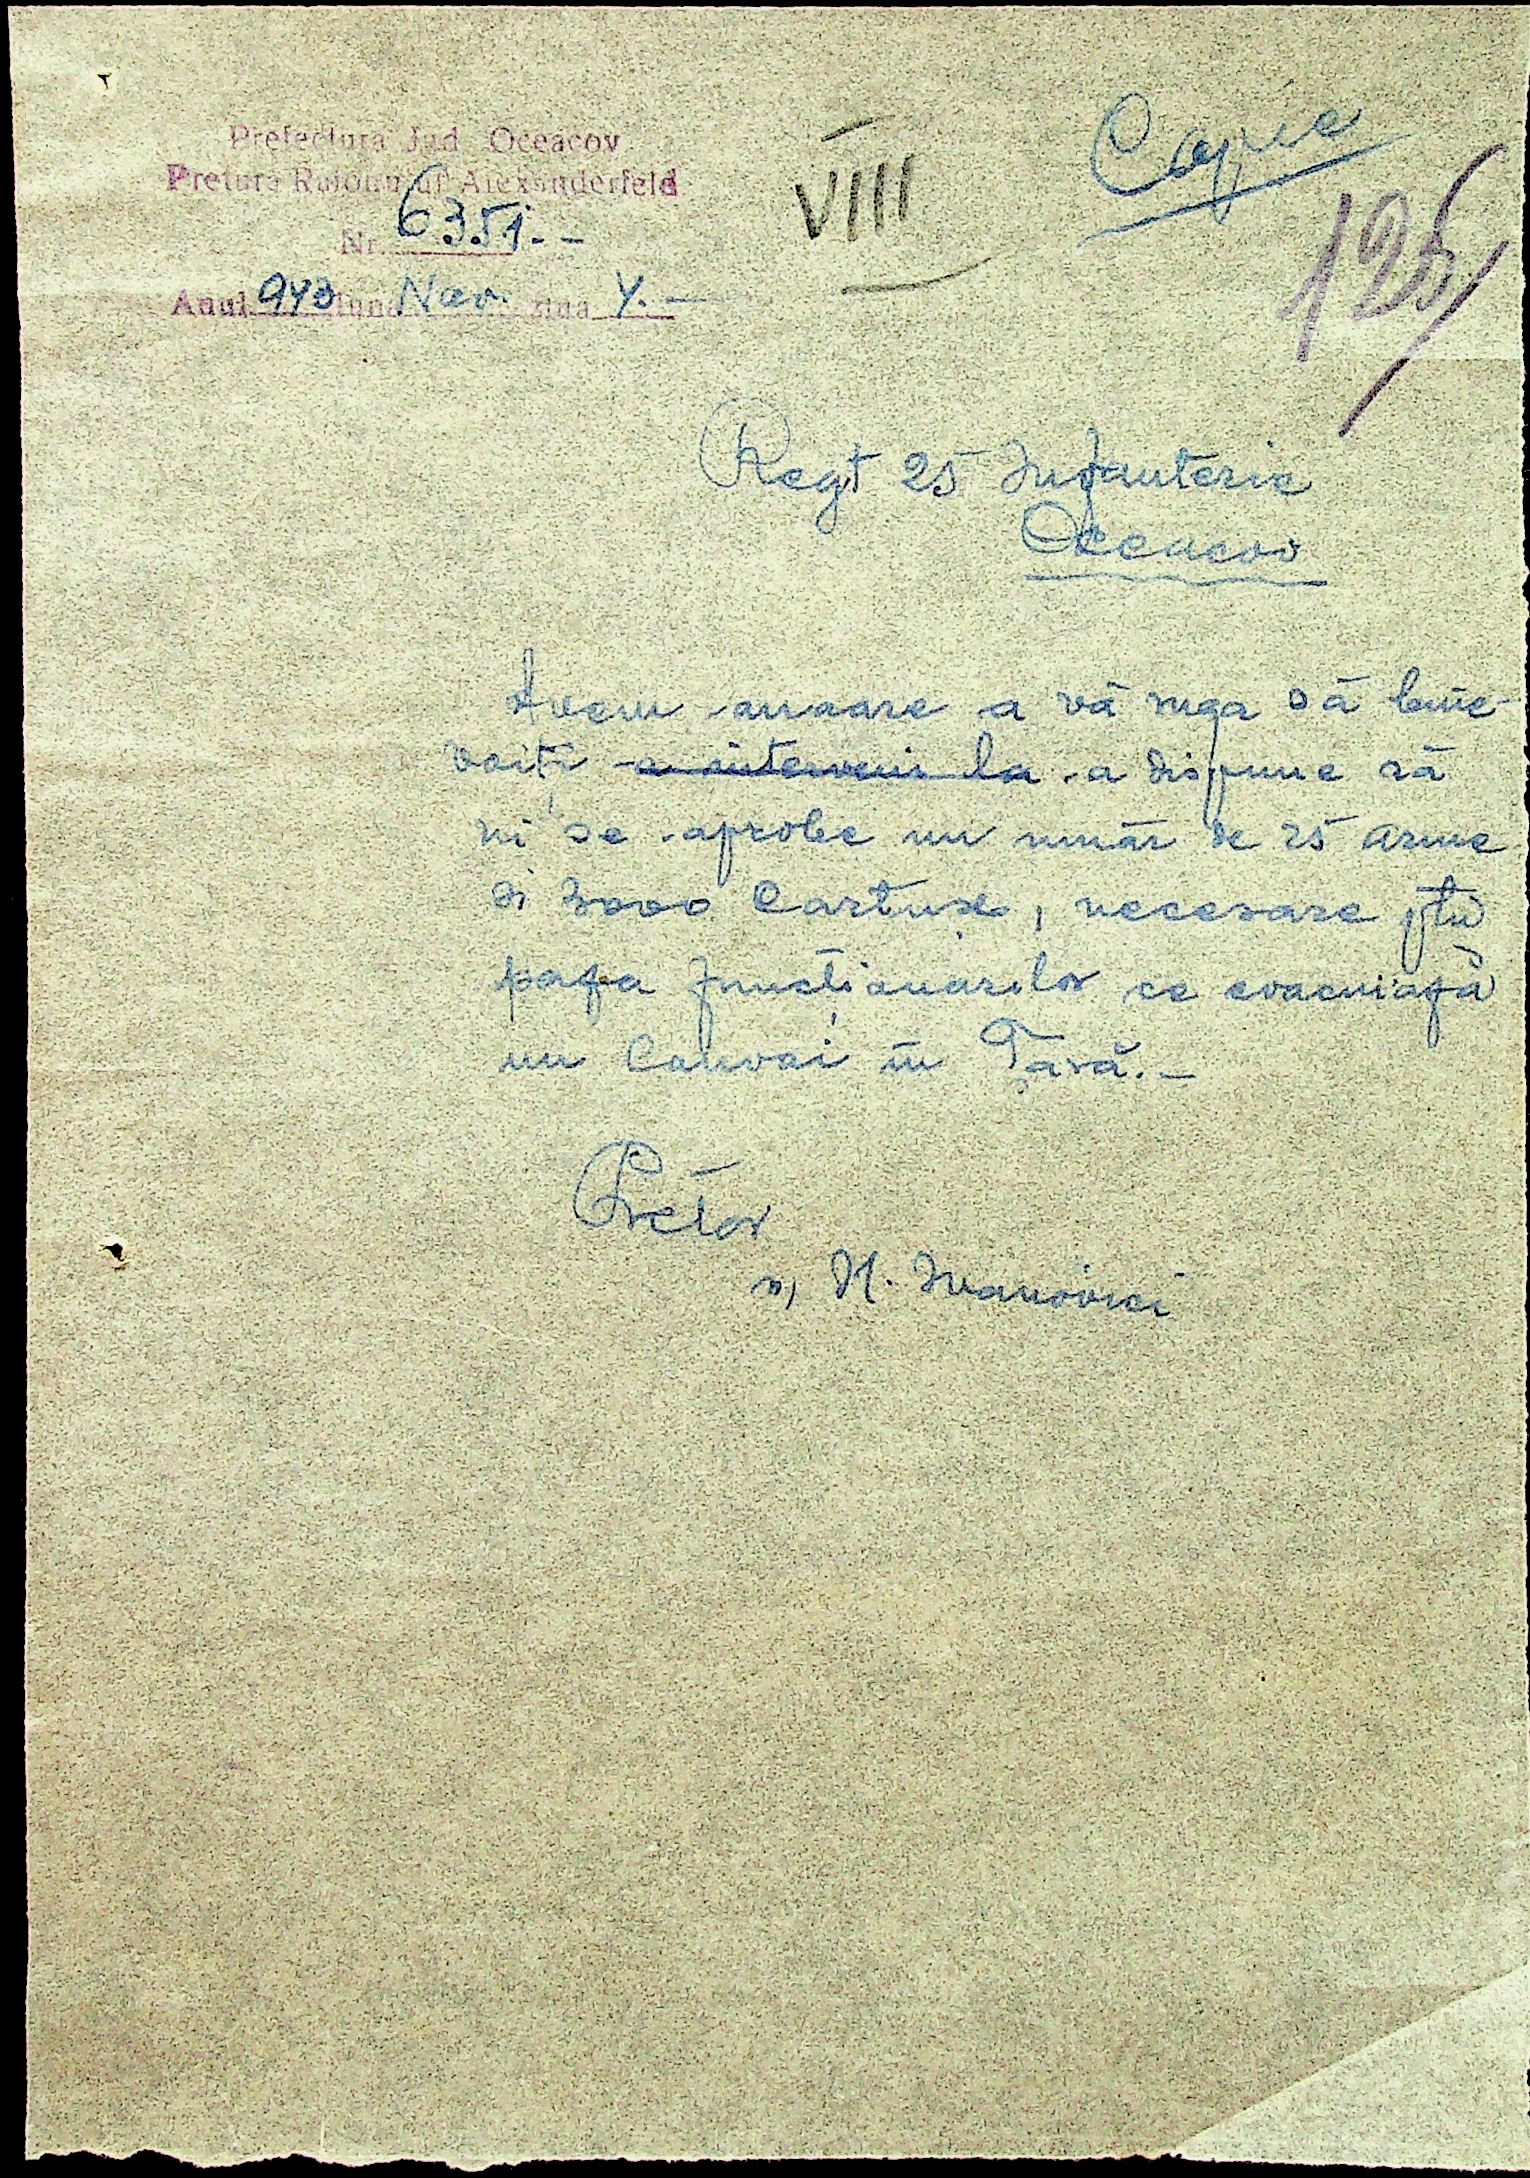 Copie
Prefectura Jud. Oceacov
Pretura Raionului Alexanderfeld
VIII
125
Nr. 6351.-
Anul 943 luna Nov. ziua 4.-
Regt 25 Infanterie
Oceacov
Avem onoare a vă ruga să bine-
voiți a interveni la a dispune să
ni se aprobe un număr de 25 arme
si 3000 Cartușe, necesare ptu
paza funcționarilor ce evacuiază
un Convoi în Țară.-
Pretor
N. Ivanovici